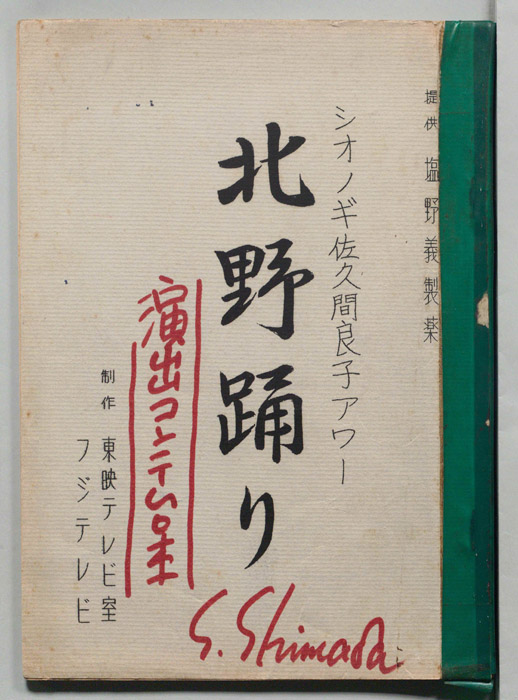 提供 塩野義製薬
シオノギ佐久間良子アワー
北野踊り
演出コンテ台本
制作 東映テレビ室
フジテレビ
S. Shimada